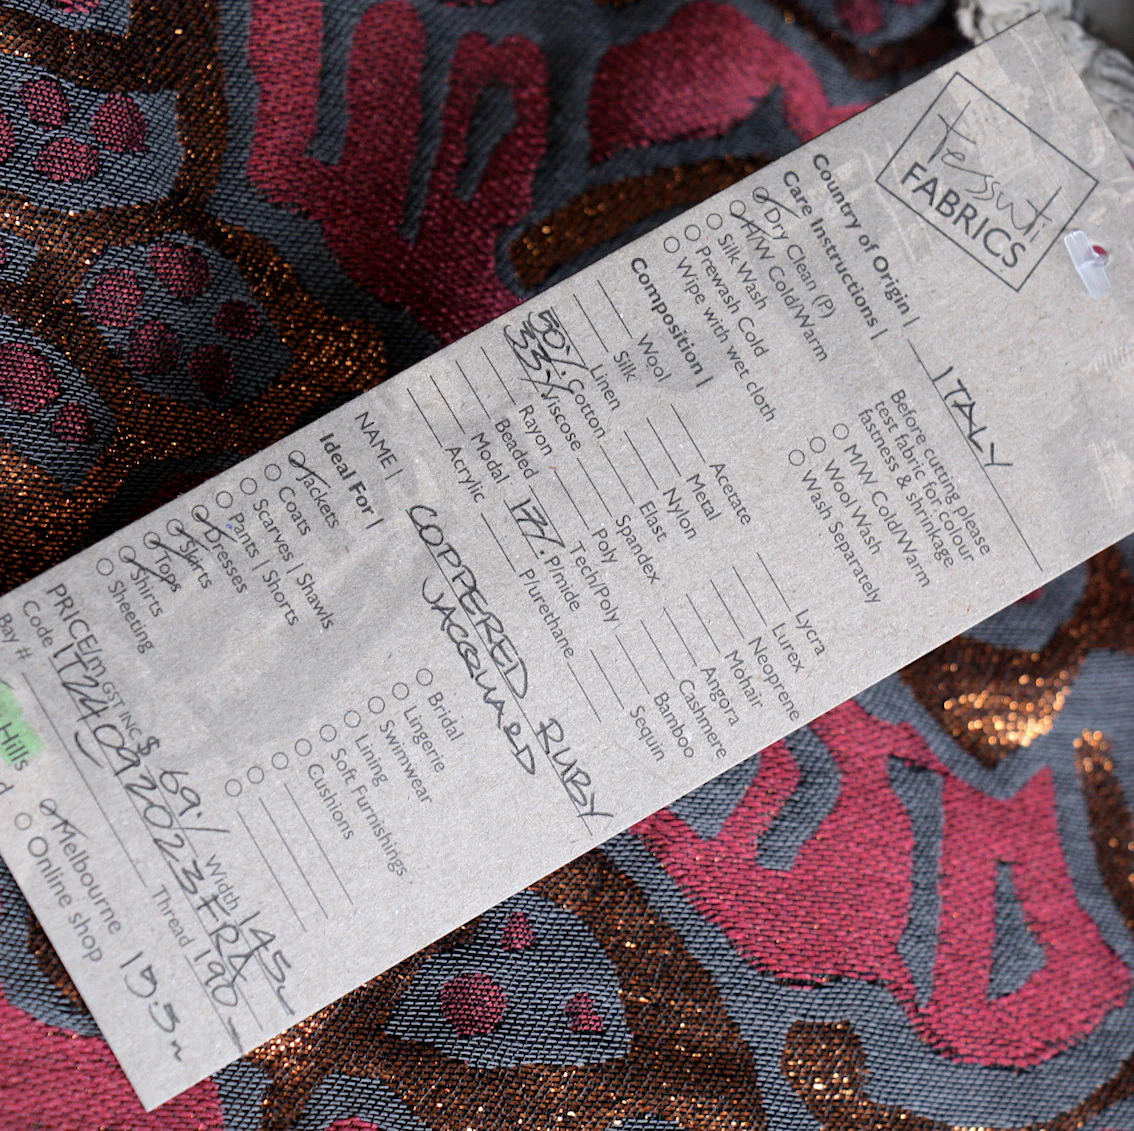 Tessuti
FABRICS
Country of Origin | ITALY
Care Instructions |
Dry Clean (P)
H/W Cold/Warm
Silk Wash
Prewash Cold
Wipe with wet cloth
Before cutting please
test fabric for colour
fastness & shrinkage
M/W Cold/Warm
Wool Wash
Wash Separately
Composition |
Wool
Silk
Linen
50% Cotton
33% Viscose
Rayon
Beaded
Modal
Acrylic
Acetate
Metal
Nylon
Elast
Spandex
Poly
Tech/Poly
17% P/mide
P/urethane
Lycra
Lurex
Neoprene
Mohair
Angora
Cashmere
Bamboo
Sequin
NAME | COPPERED RUBY
JACQUARD
Ideal For |
Jackets
Coats
Scarves | Shawls
Pants | Shorts
Dresses
Skirts
Tops
Shirts
Sheeting
Bridal
Lingerie
Swimwear
Lining
Soft Furnishings
Cushions
PRICE/m GST INC $ 69./ Width 145
Code IT24092023FRA
Bay # Thread 190
Hills
Melbourne
Online shop